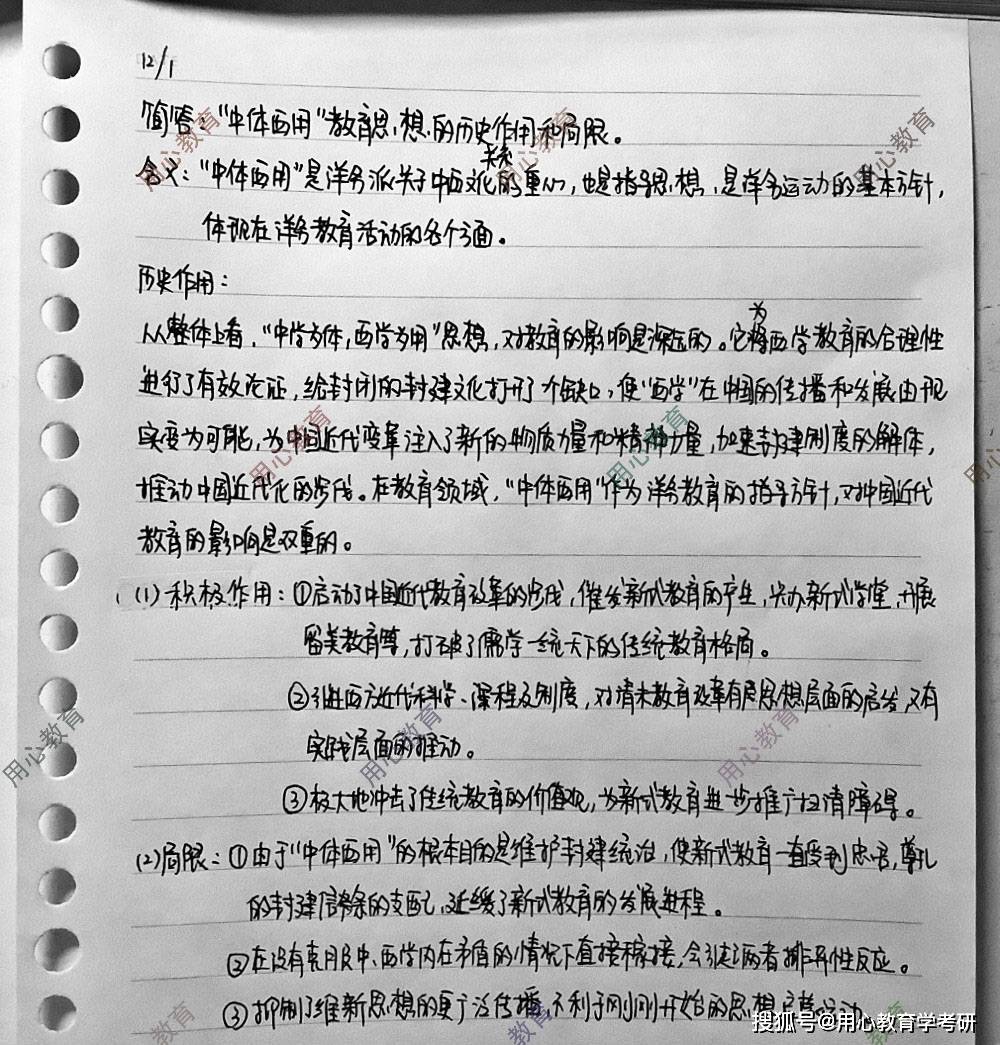 12/1
简答：“中体西用”教育思想的历史作用和局限。
关系
含义：“中体西用”是洋务派关于中西文化的重心，也是指导思想，是洋务运动的基本方针，
体现在洋务教育活动的各个方面。
历史作用：
从整体上看，“中学为体，西学为用”思想，对教育的影响是深远的。它将西学教育的合理性
为
进行了有效论证，给封闭的封建文化打开了个缺口，使“西学”在中国的传播和发展由现
实变为可能，为中国近代变革注入了新的物质力量和精神力量，加速封建制度的解体，
推动中国近代化的步伐。在教育领域，“中体西用”作为洋务教育的指导方针，对中国近代
教育的影响是双重的。
(1)积极作用：①启动了中国近代教育改革的步伐，催发新式教育的产生，兴办新式学堂，开展
留美教育等，打破了儒学一统天下的传统教育格局。
②引进西方近代科学、课程及制度，对清末教育改革有思想层面的启发，又有
实践层面的推动。
③极大地冲击了传统教育的价值观，为新式教育进一步推广扫清障碍。
(2)局限：①由于“中体西用”的根本目的是维护封建统治，使新式教育一直受到忠君，尊孔
的封建信条的支配，延缓了新式教育的发展进程。
②在没有克服中、西学内在矛盾的情况下直接嫁接，会引起两者排异性反应。
③抑制了维新思想的更广泛传播，不利于刚刚开始的思想启蒙运动
搜狐号@用心教育学考研
用心教育
用心教育
用心教育
用心教育
用心教育
用心教育
用心教育
用心教育
用心教育
教育
教育